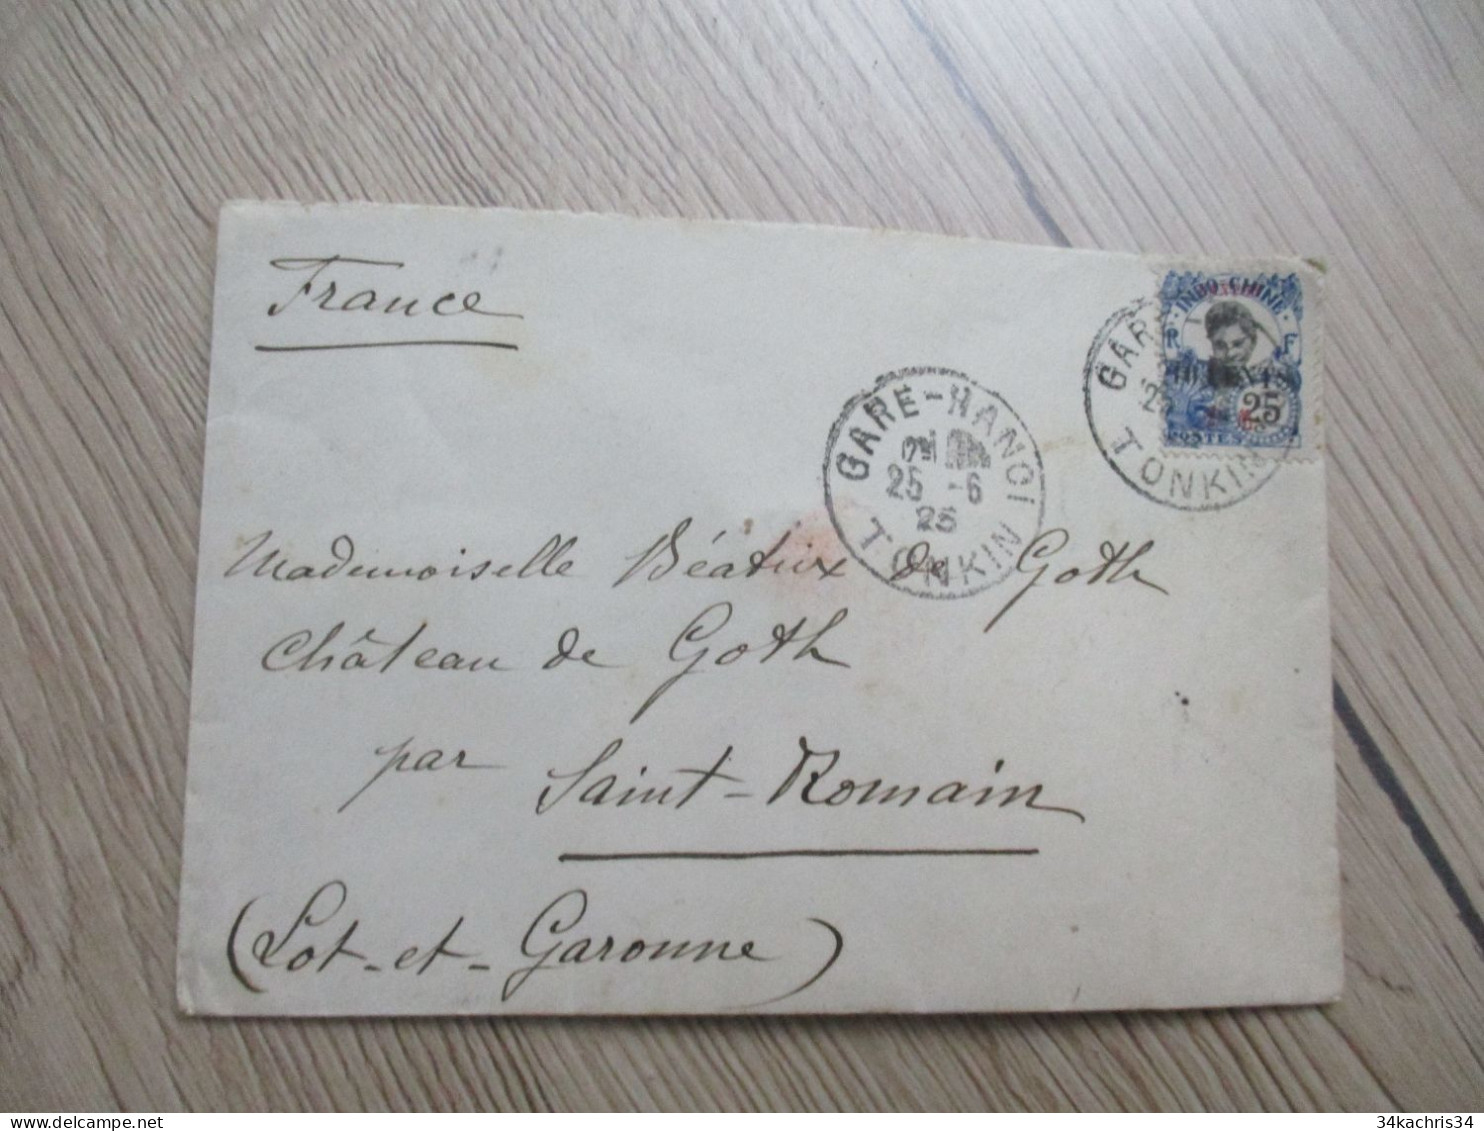 France
INDO-CHINE
R F
25
POSTES
GARE-HANOI
25 -6
25
TONKIN
GARE
25
TONKIN
Mademoiselle Béatrix de Goth
Château de Goth
par Saint-Romain
(Lot-et-Garonne)
34kachris34